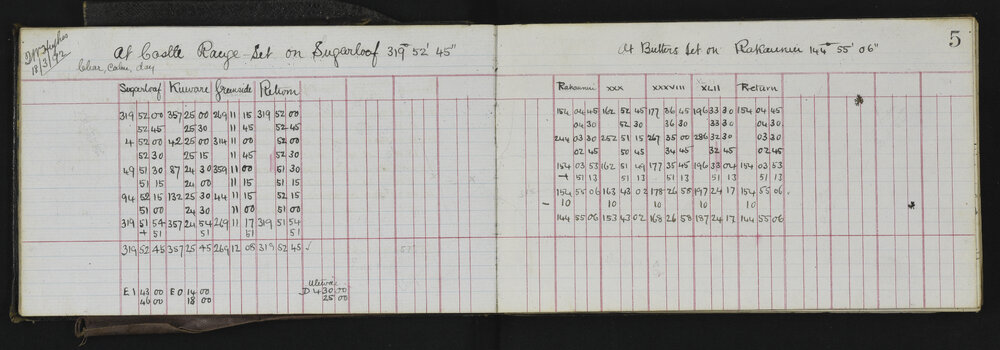 18/3/92
At Castle Range Set on Sugarloaf 319° 52' 45"
Clear, calm, day
Sugarloaf Kuware Greenside Return
319 52 00 357 25 00 269 11 15 319 52 00
52 45 25 30 11 45 52 45
4 52 00 42 25 00 314 11 00 52 00
52 30 25 15 11 45 52 30
49 51 30 87 24 30 359 11 00 51 30
51 15 24 00 11 15 51 15
94 52 15 132 25 30 44 11 15 52 15
51 00 24 30 11 00 51 00
319 51 54 357 24 54 269 11 17 319 51 54
+ 51 51 51 51
319 52 45 357 25 45 269 12 08 319 52 45 ✓
E 1 43 00 E 0 14 00 D 4 30 00
46 00 18 00 25 00
5
At Butters Set on Rakaunui 144° 55' 06"
Rakaunui XXX XXXVIII XLII Return
154 04 45 162 52 45 177 36 45 196 33 30 154 04 45
04 30 52 30 36 30 33 30 04 30
244 03 30 252 51 15 267 35 00 286 32 30 03 30
02 45 50 45 34 45 32 45 02 45
154 03 53 162 51 49 177 35 45 196 33 04 154 03 53
+ 51 13 51 13 51 13 51 13 51 13
154 55 06 163 43 02 178 26 58 197 24 17 154 55 06
- 10 10 10 10 10
144 55 06 153 43 02 168 26 58 187 24 17 144 55 06